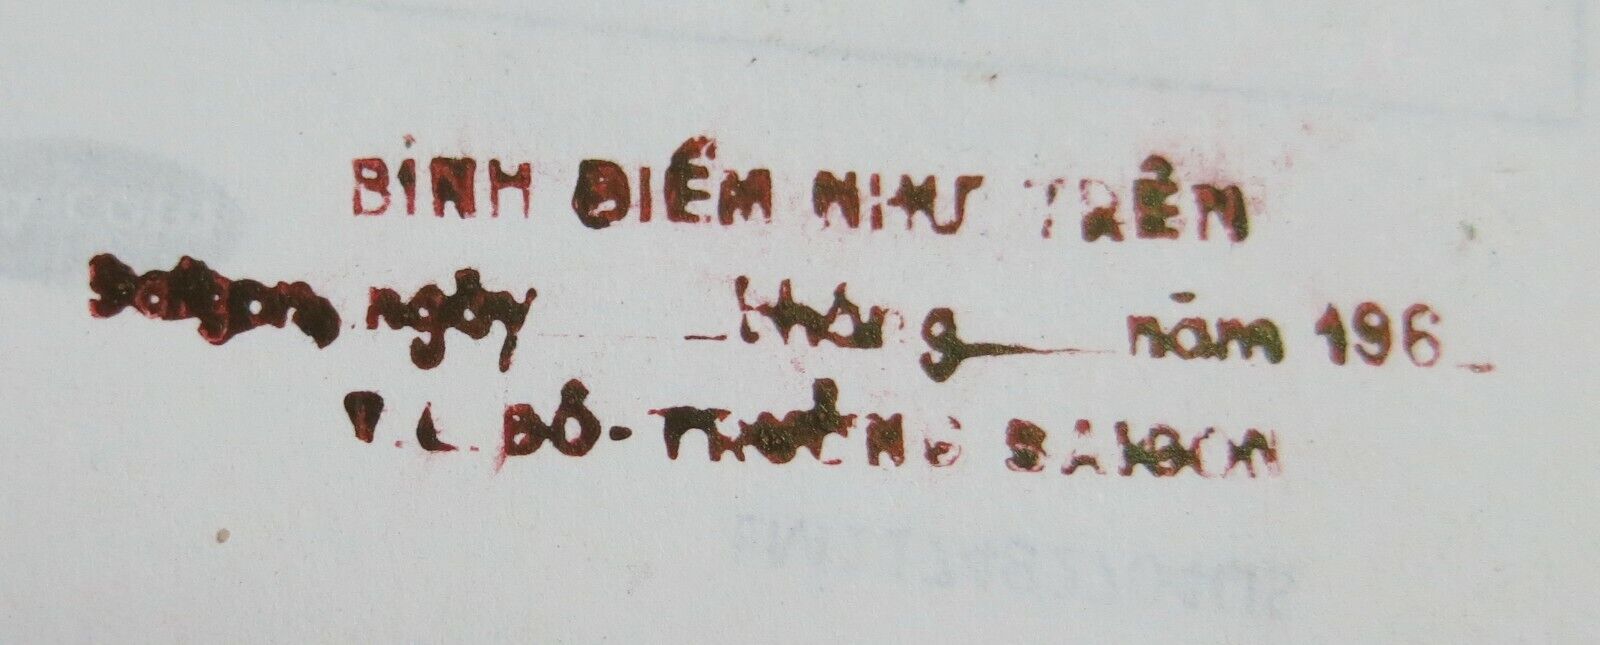 BÌNH ĐIỂM NHƯ TRÊN
Saigon, ngày tháng năm 196
T.L. ĐÔ-TRƯỞNG SAIGON